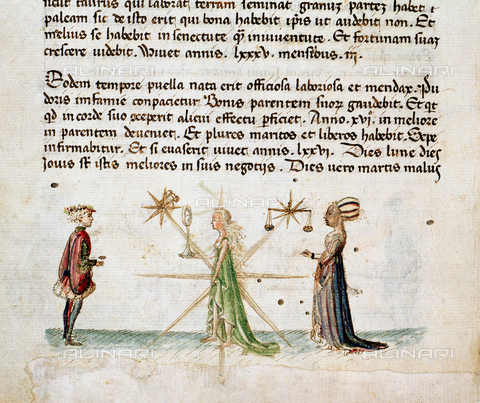 ndit taurus qui laborat terram seminat granuz partez habet i
palcam sic de isto erit qui bona habebit ipis ut audebit non. Et
melius se habebit in senectute qz in iuventute. Et fortunam suaz
crescere videbit. Vivet annis. lxxxv. mensibus. iij.
Eodem tempore puella nata erit officiosa laboriosa et mendax. Pu
doris infamie conpacietur. Bonis parentem suoz gaudebit. Et qt
qd in corde suo perit alicui effectu pficiet. Anno. xvi. in meliore
in parentem deveniet. Et plures maritos et liberos habebit. Sepe
infirmabitur. Et si evaserit vivet annis. lxxvi. Dies lune dies
iovis st istis meliores in suis negotijs. Dies vero martis malus
ALINARI
ALINARI
ALINARI
ALINARI
ALINARI
ALINARI